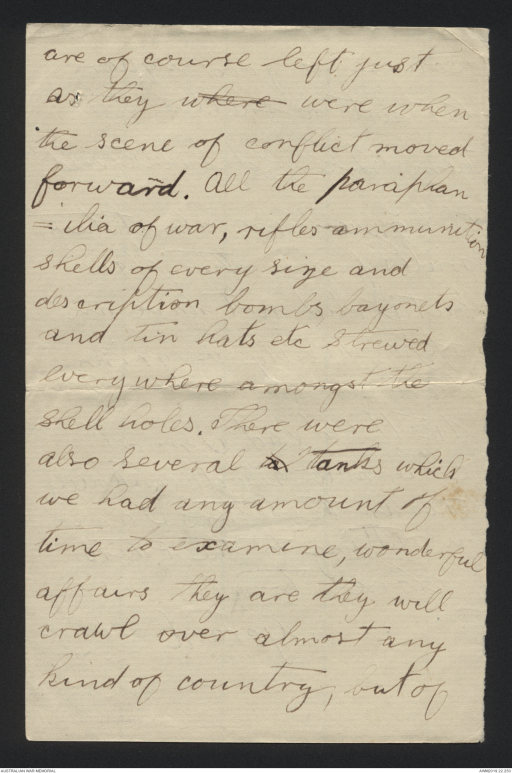 are of course left just
as they where were when
the scene of conflict moved
forward. All the paraphan
= ilia of war, rifles ammunition
shells of every size and
description bombs bayonets
and tin hats etc strewed
everywhere amongst the
shell holes. There were
also several tanks which
we had any amount of
time to examine, wonderful
affairs they are they will
crawl over almost any
kind of country, but of
AUSTRALIAN WAR MEMORIAL